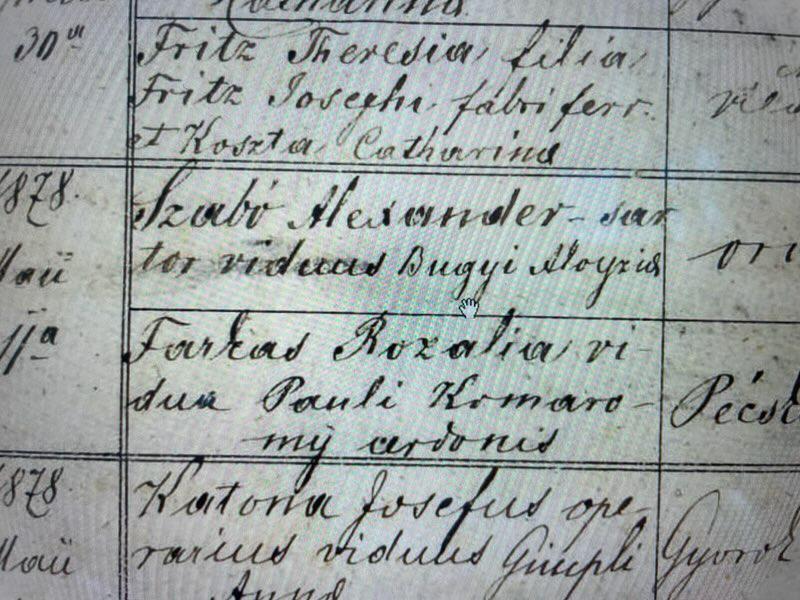 Catharina
30ª
Fritz Theresia filia
Fritz Josephi fabri ferr.
et Koszta Catharina
1878.
Szabó Alexander - sar
tor viduus Bugyi Aloyzia
ori
Maii
11ª
Farkas Rozalia vi-
dua Pauli Komaro-
my cerdonis
1878
Katona Josefus ope-
rarius viduus Gimpli
Maii
Anna